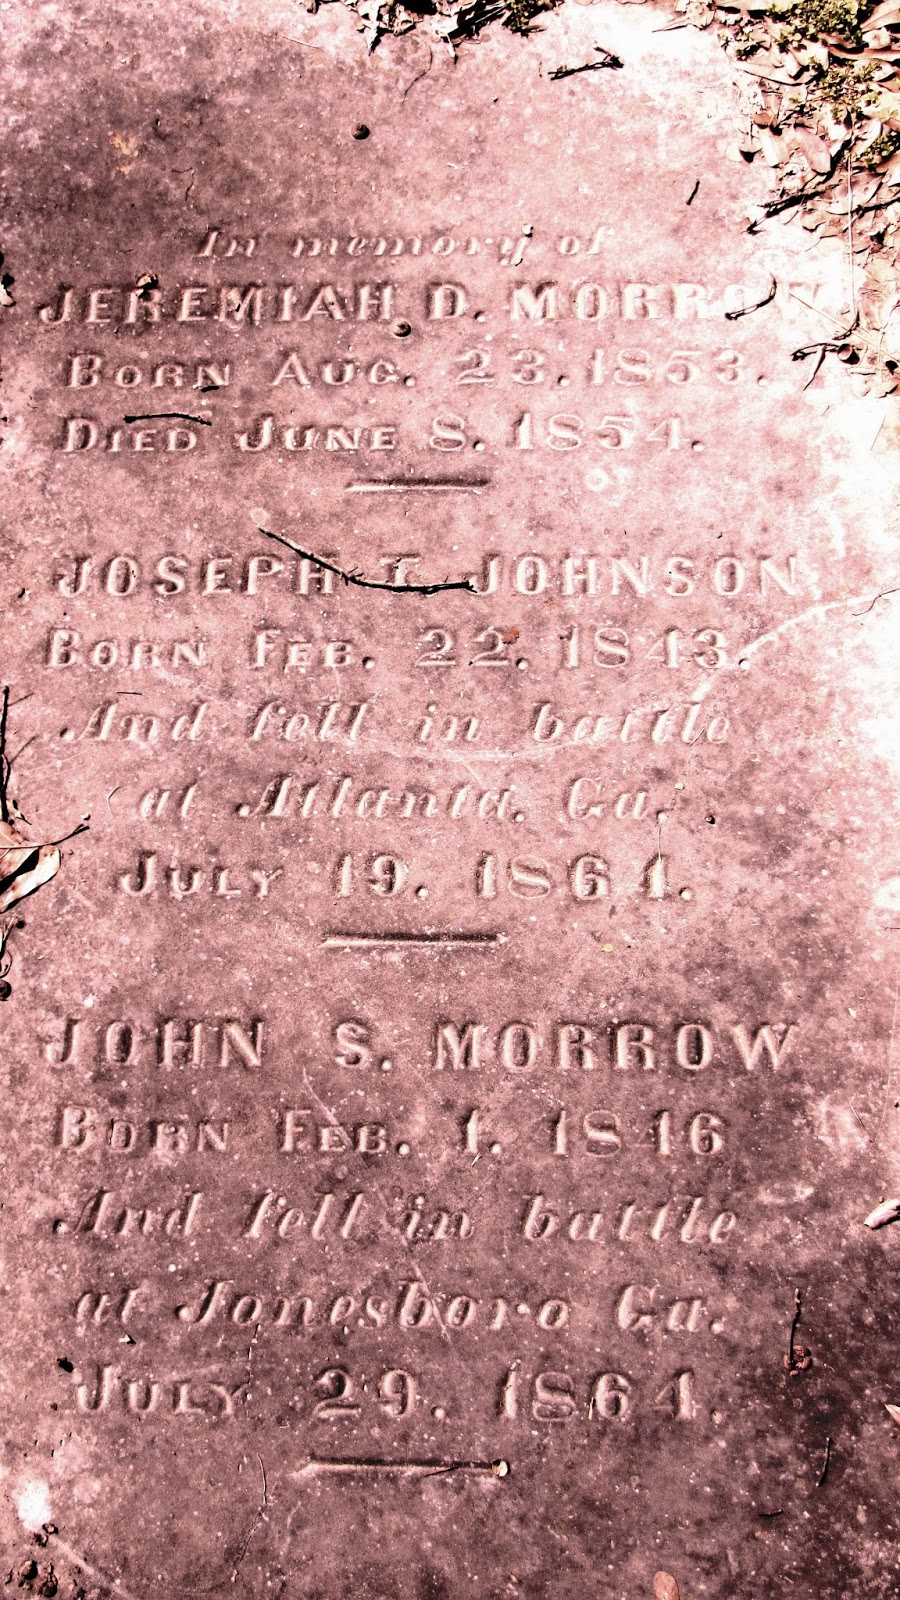 In memory of
JEREMIAH D. MORROW
BORN AUG. 23. 1853.
DIED JUNE 8. 1854.
JOSEPH T. JOHNSON
BORN FEB. 22. 1843.
And fell in battle
at Atlanta, Ga.
JULY 19. 1864.
JOHN S. MORROW
BORN FEB. 1. 1846
And fell in battle
at Jonesboro Ga.
JULY 29. 1864.